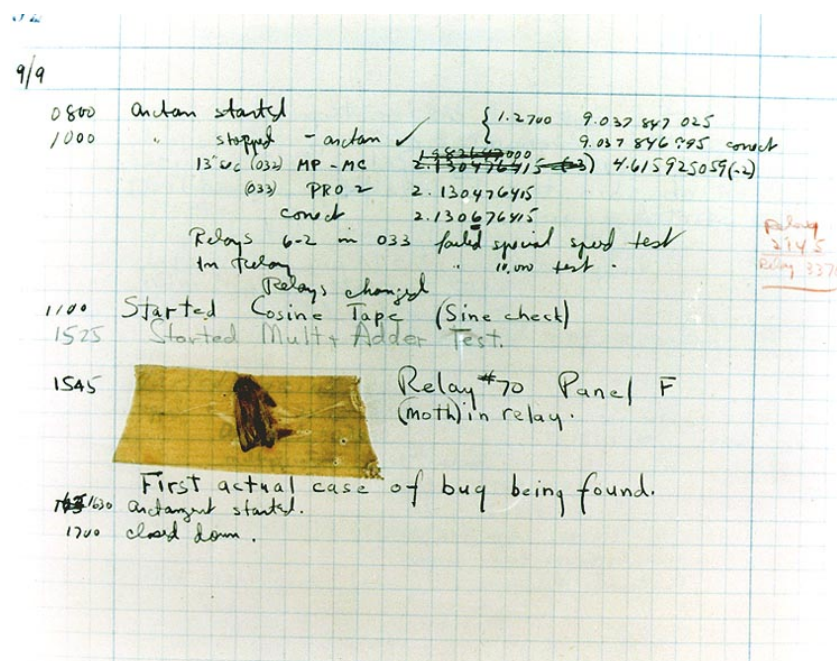 9/9
0800 Antan started { 1.2700 9.037 847 025
1000 " stopped - antan ✓ 9.037 846 995 conect
13" uc (032) MP - MC 2.130476415 (-3) 4.615925059(-2)
(033) PRO 2 2.130476415
conect 2.130676415
Relays 6-2 in 033 failed special speed test
In Relay " 11,000 test .
Relays changed
Relay
3370
1100 Started Cosine Tape (Sine check)
1525 Started Mult + Adder Test.
1545 Relay #70 Panel F
(moth) in relay.
First actual case of bug being found.
1630 antangent started.
1700 closed down.